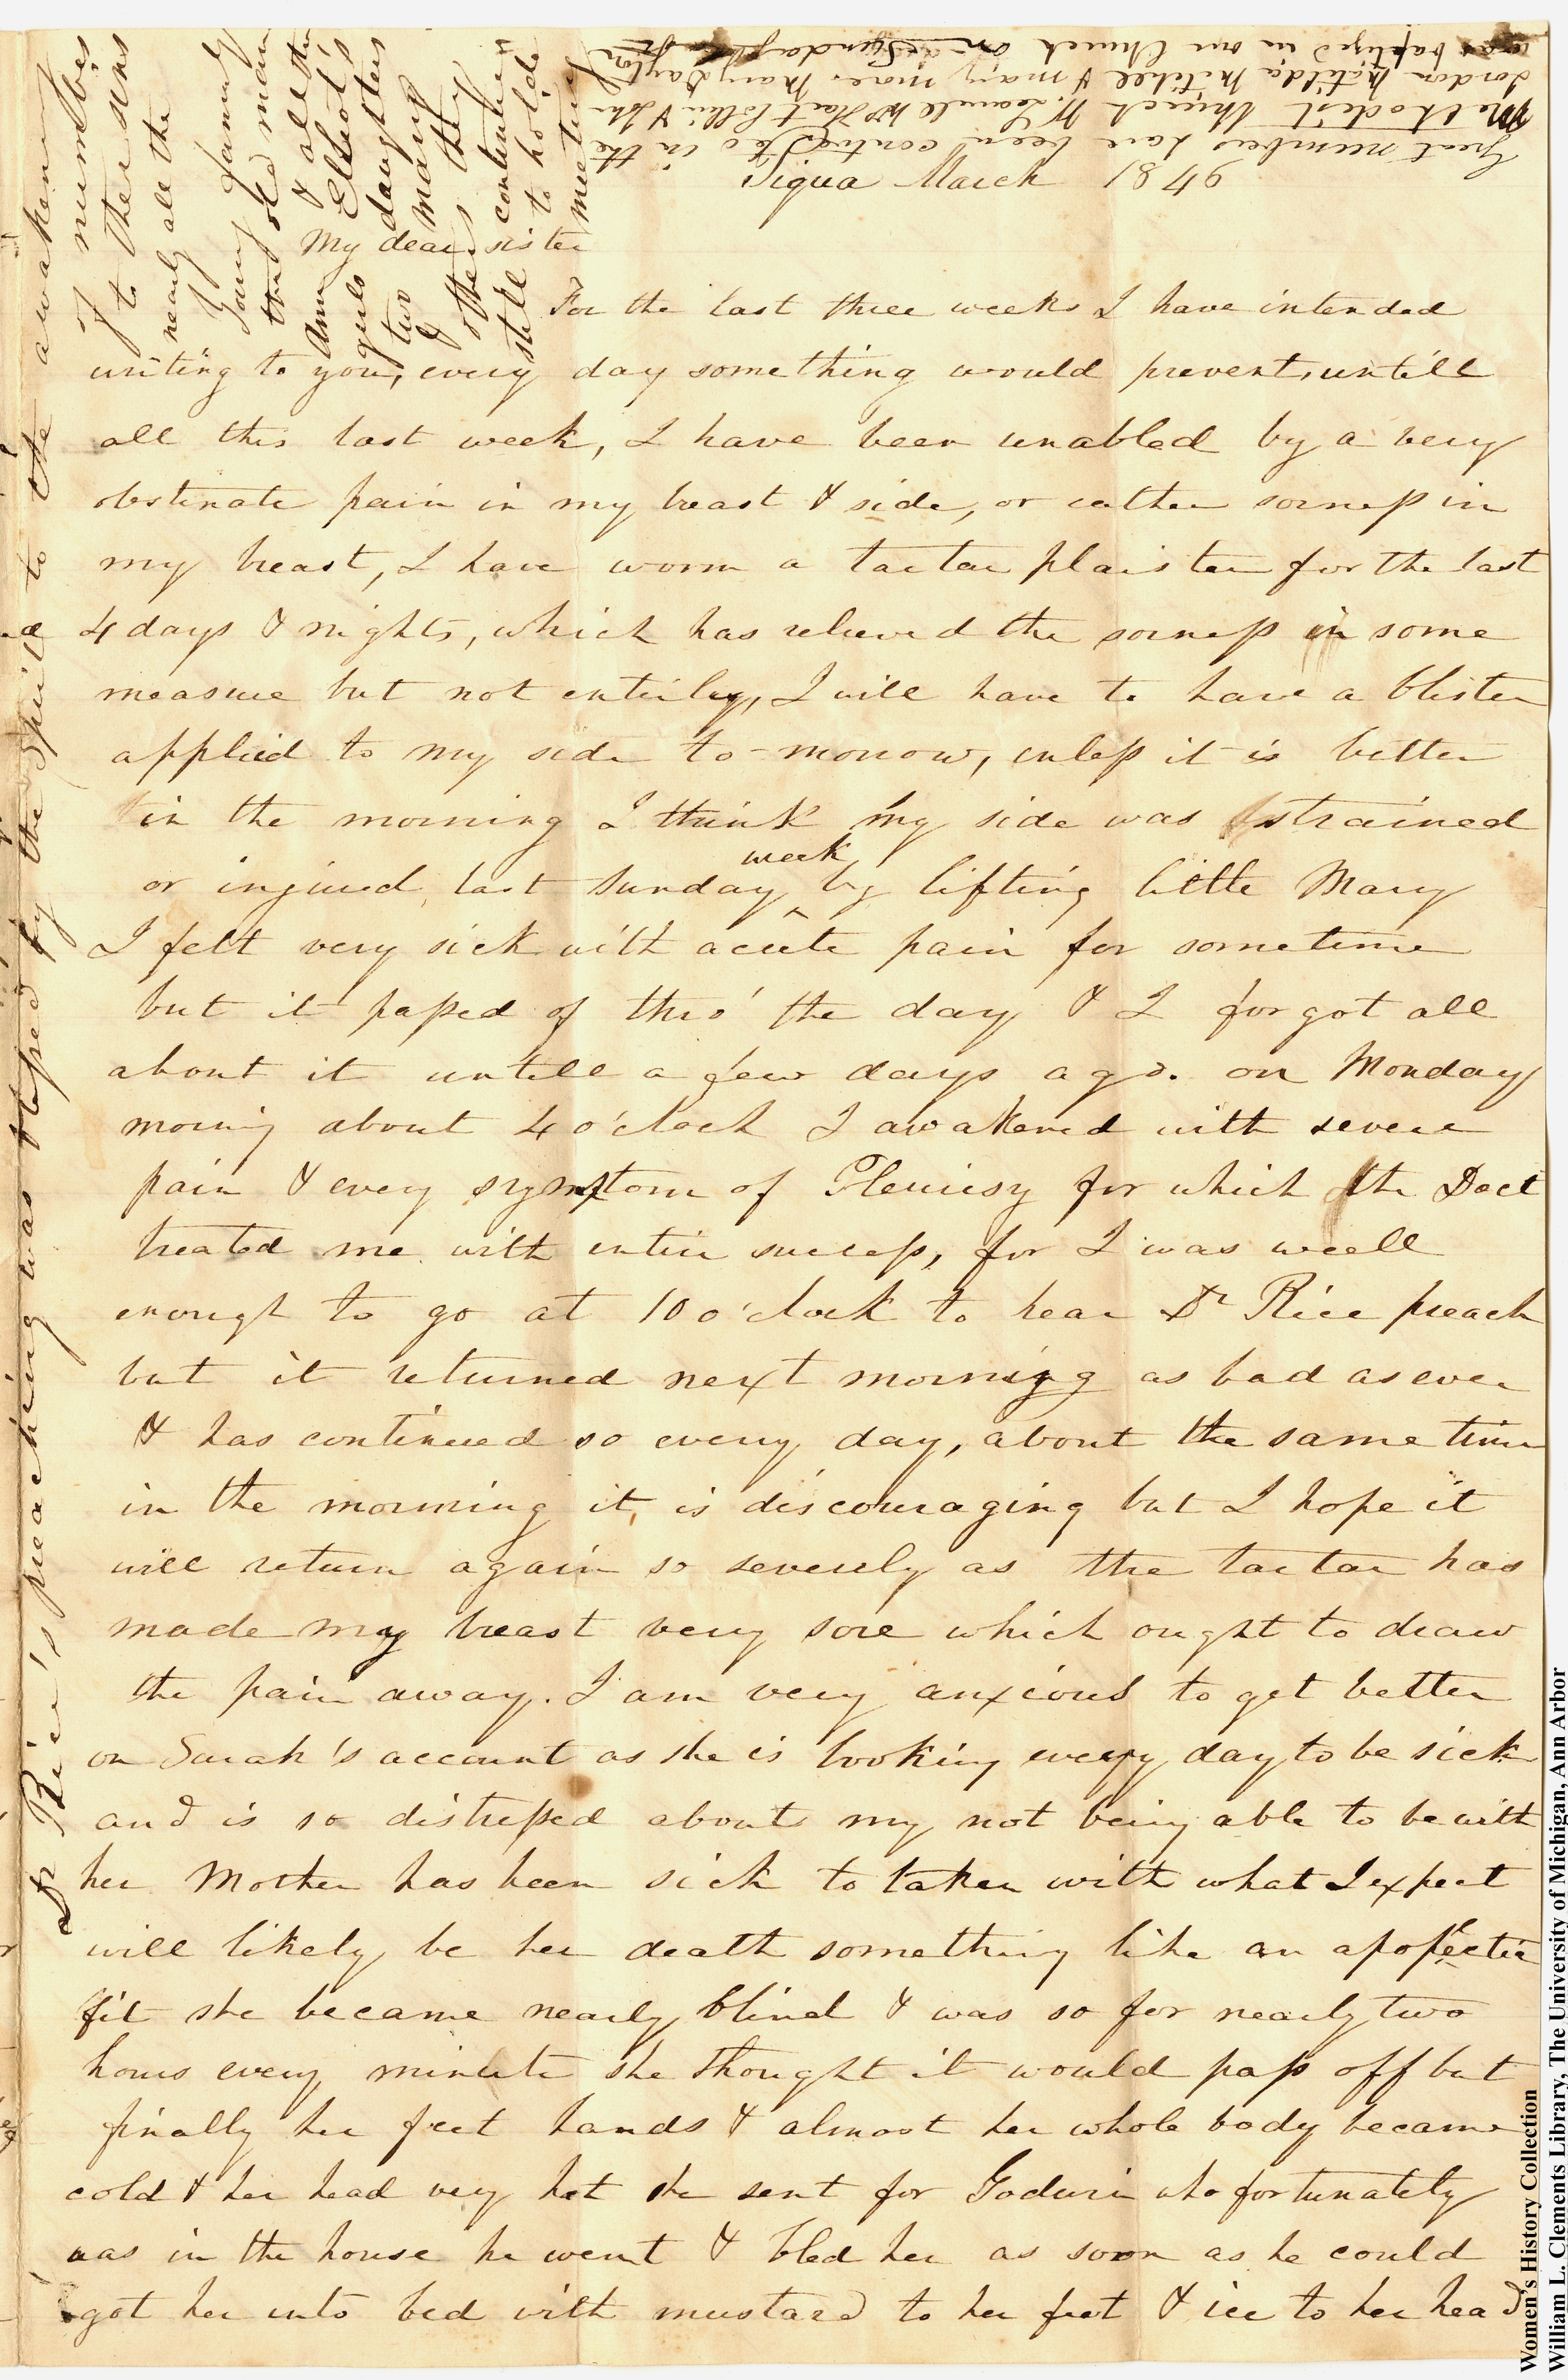 Piqua March 1846
My dear sister
For the last three weeks I have intended
writing to you, every day something would prevent, untill
all this last week, I have been unabled by a very
obstinate pain in my breast & side, or rather sorness in
my breast, I have worn a tartar plaister for the last
4 days & nights, which has relieved the sorness in some
measure but not entirley, I will have to have a blister
applied to my side to-morrow, unless it is better
in the morning I think my side was strained
or injured, last Sunday week by lifting little Mary
I felt very sick with acute pain for sometime
but it passed of thro' the day & I forgot all
about it untill a few days ago. on Monday
morning about 4 o'clock I awakened with severe
pain & every symptom of Pleurisy for which the Doct
treated me with entire success, for I was well
enough to go at 10 o'clock to hear Dr Rice preach
but it returned next morning as bad as ever
& has continued so every day, about the same time
in the morning it is discouraging but I hope it
will return again so severely as the tartar has
made my breast very sore which ought to draw
the pain away. I am very anxious to get better
on Sarah's account as she is looking every day to be sick
and is so distressed about my not being able to be with
her Mother has been sick to taken with what I expect
will likely be her death something like an apoplectic
fit she became nearly blind & was so for nearly two
hours every minute she thought it would pass off but
finally her feet hands & almost her whole body became
cold & her head very hot she sent for Godwin who fortunately
was in the house he went & bled her as soon as he could
got her into bed with mustard to her feet & ice to her head
Dr Rice's preaching was blessed by the Spirit to the awakening
of numbers
to their sins
nearly all the
Young
the old man
Ann & all the
girls Elliot's
two daughters
& many
others they
still continue
to hold
meeting
Great numbers have been converted in the
Methodist Church
Jordon Matilda Mitchell & many more Mary Daylor
was baptized in our Church on Sunday
Women's History Collection
William L. Clements Library, The University of Michigan, Ann Arbor